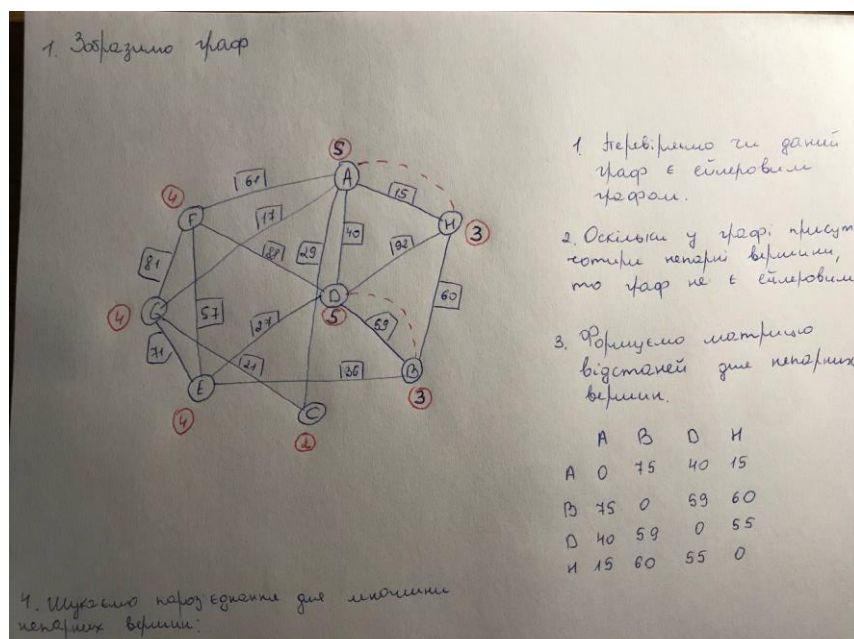 1. Зобразимо граф
5
A
61
15
4
F
17
H
3
29
40
92
81
D
5
4
G
57
27
59
60
71
21
36
B
E
C
3
4
2
1. Перевіряємо чи даний
граф є ейлеровим
графом.
2. Оскільки у графі присут
чотири непарні вершини,
то граф не є ейлеровим
3. Формуємо матрицю
відстаней для непарних
вершин.
A B D H
A 0 75 40 15
B 75 0 59 60
D 40 59 0 55
H 15 60 55 0
4. Шукаємо пароз'єднання для множини
непарних вершин: